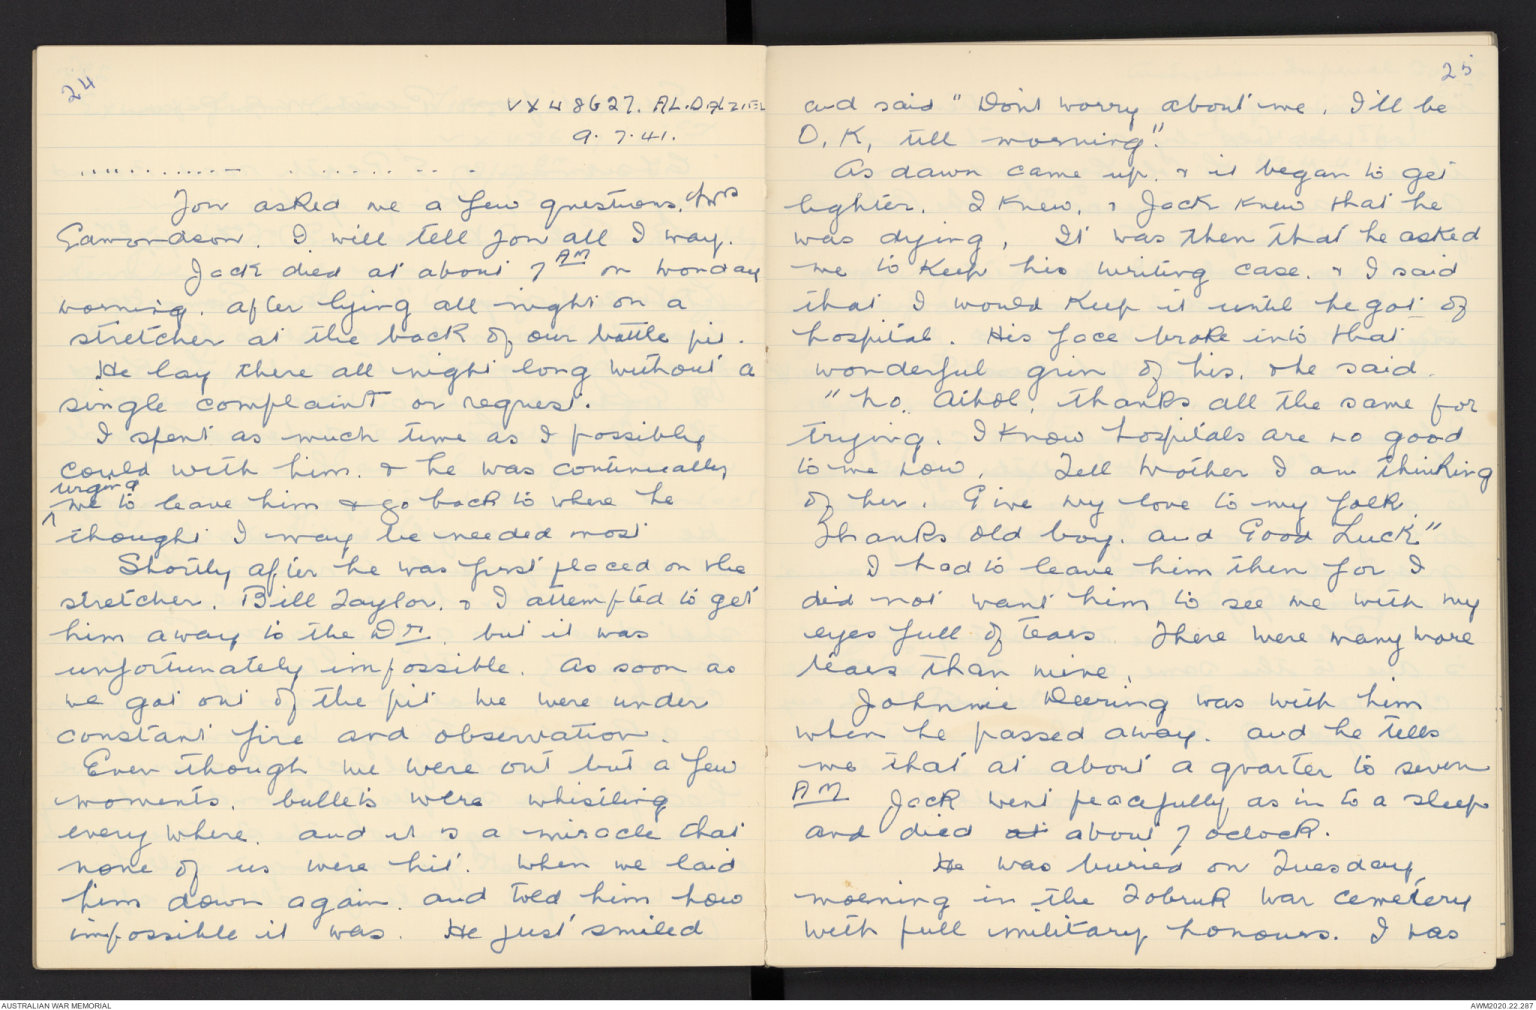 24
VX48627. AL. DALZIEL
9.7.41.
You asked me a few questions, Mrs
Edmondson. I will tell you all I may.
Jack died at about 7 AM on Monday
morning. after lying all night on a
stretcher at the back of our battle pit.
He lay there all night long without a
single complaint or request.
I spent as much time as I possibly
could with him. & he was continually
urging
me to leave him & go back to where he
thought I may be needed most
Shortly after he was first placed on the
stretcher. Bill Taylor. & I attempted to get
him away to the Dr. but it was
unfortunately impossible. As soon as
we got out of the pit we were under
constant fire and observation.
Even though we were out but a few
moments. bullets were whistling
every where. and it is a miracle that
none of us were hit. When we laid
him down again. and told him how
impossible it was. He just smiled
25
and said "Don't worry about me. I'll be
O.K, till morning."
As dawn came up. & it began to get
lighter. I knew. & Jack knew that he
was dying, It was then that he asked
me to keep his writing case. & I said
that I would keep it until he got of
hospital. His face broke into that
wonderful grin of his. & he said.
"No. Athol. thanks all the same for
trying. I know hospitals are no good
to me now. Tell Mother I am thinking
of her. Give my love to my folk.
Thanks old boy. and Good Luck"
I had to leave him then for I
did not want him to see me with my
eyes full of tears There were many more
tears than mine.
Johnnie Deering was with him
when he passed away. and he tells
me that at about a quarter to seven
AM Jack went peacefully as in to a sleep
and died at about 7 oclock.
He was buried on Tuesday
morning in the Tobruk War Cemetery
with full military honours. I was
AUSTRALIAN WAR MEMORIAL
AWM2020.22.287